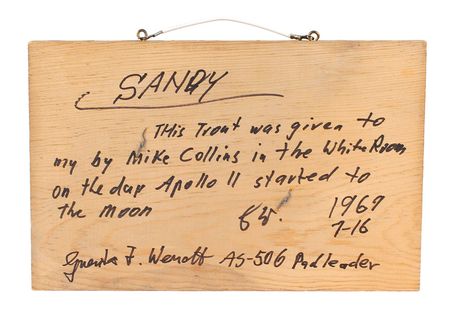 SANDY
This Trout was given to
my by Mike Collins in the White Room
on the day Apollo 11 started to
the moon
G W. 1969
7-16
Guenter F. Wendt AS-506 Padleader